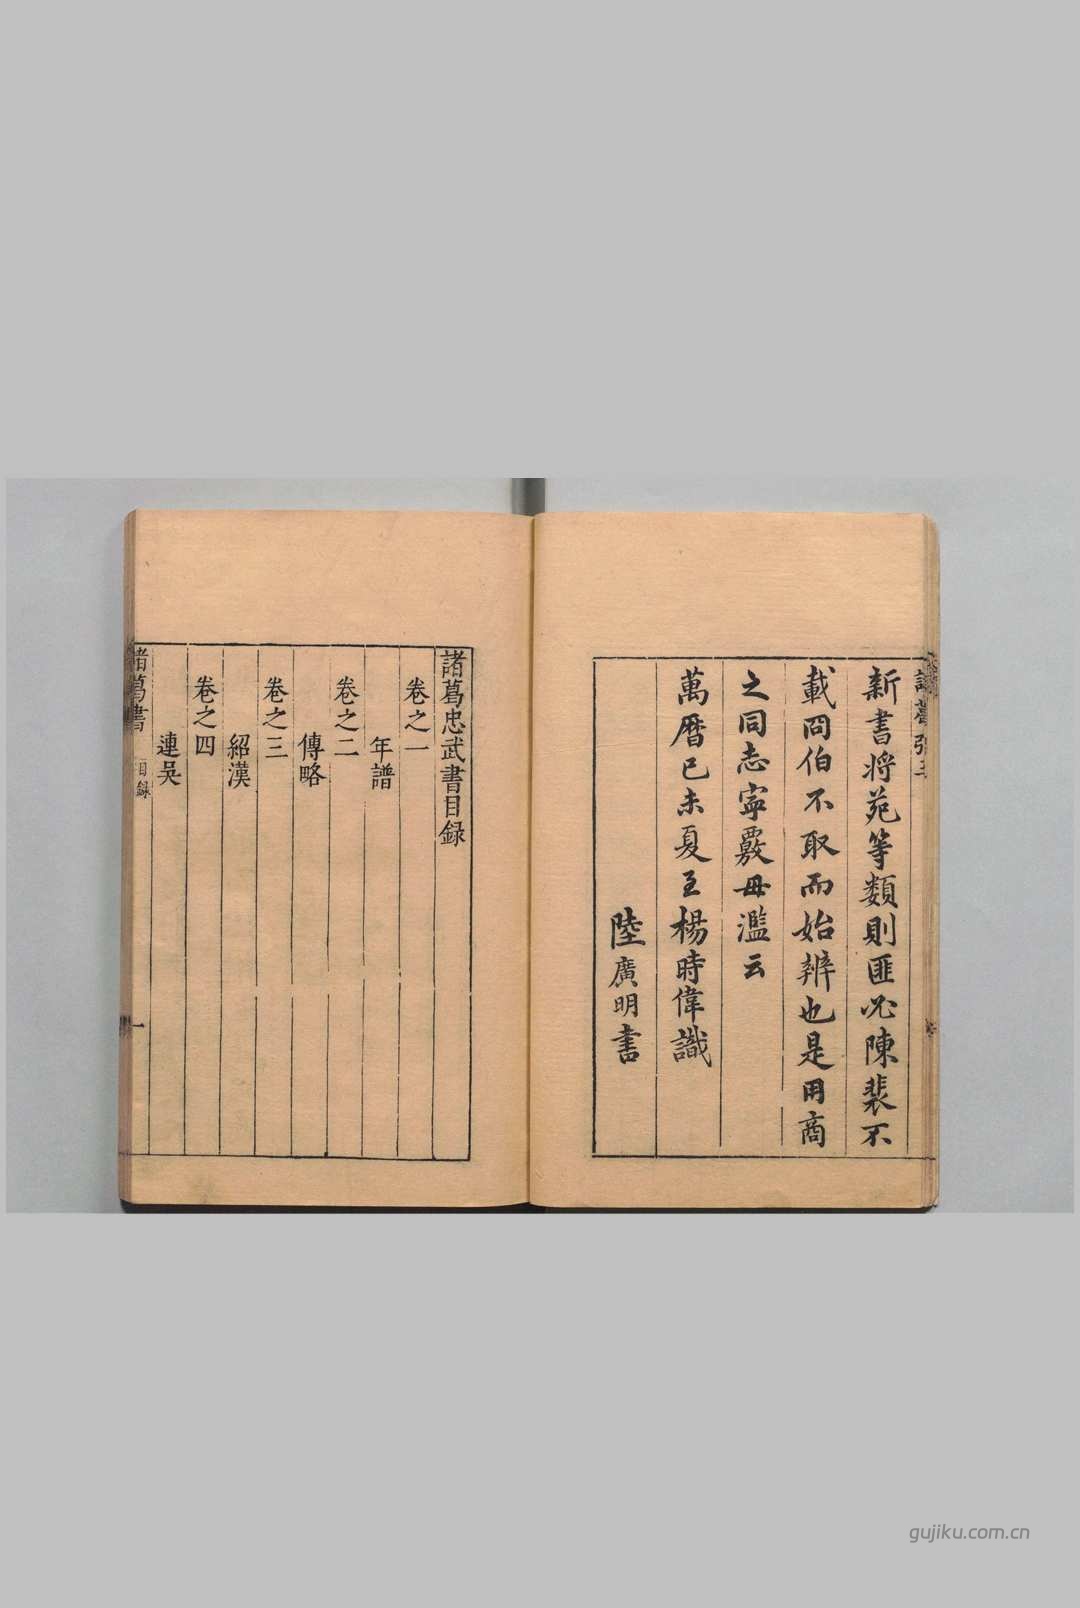 新書將苑等類則匪必陳裴不
載冏伯不取而始辨也是用商
之同志寧覈毋濫云
萬曆已未夏至楊時偉識
陸廣明書
諸葛忠武書目録
卷之一
年譜
卷之二
傳略
卷之三
紹漢
卷之四
連吳
諸葛書 目録 一
gujiku.com.cn